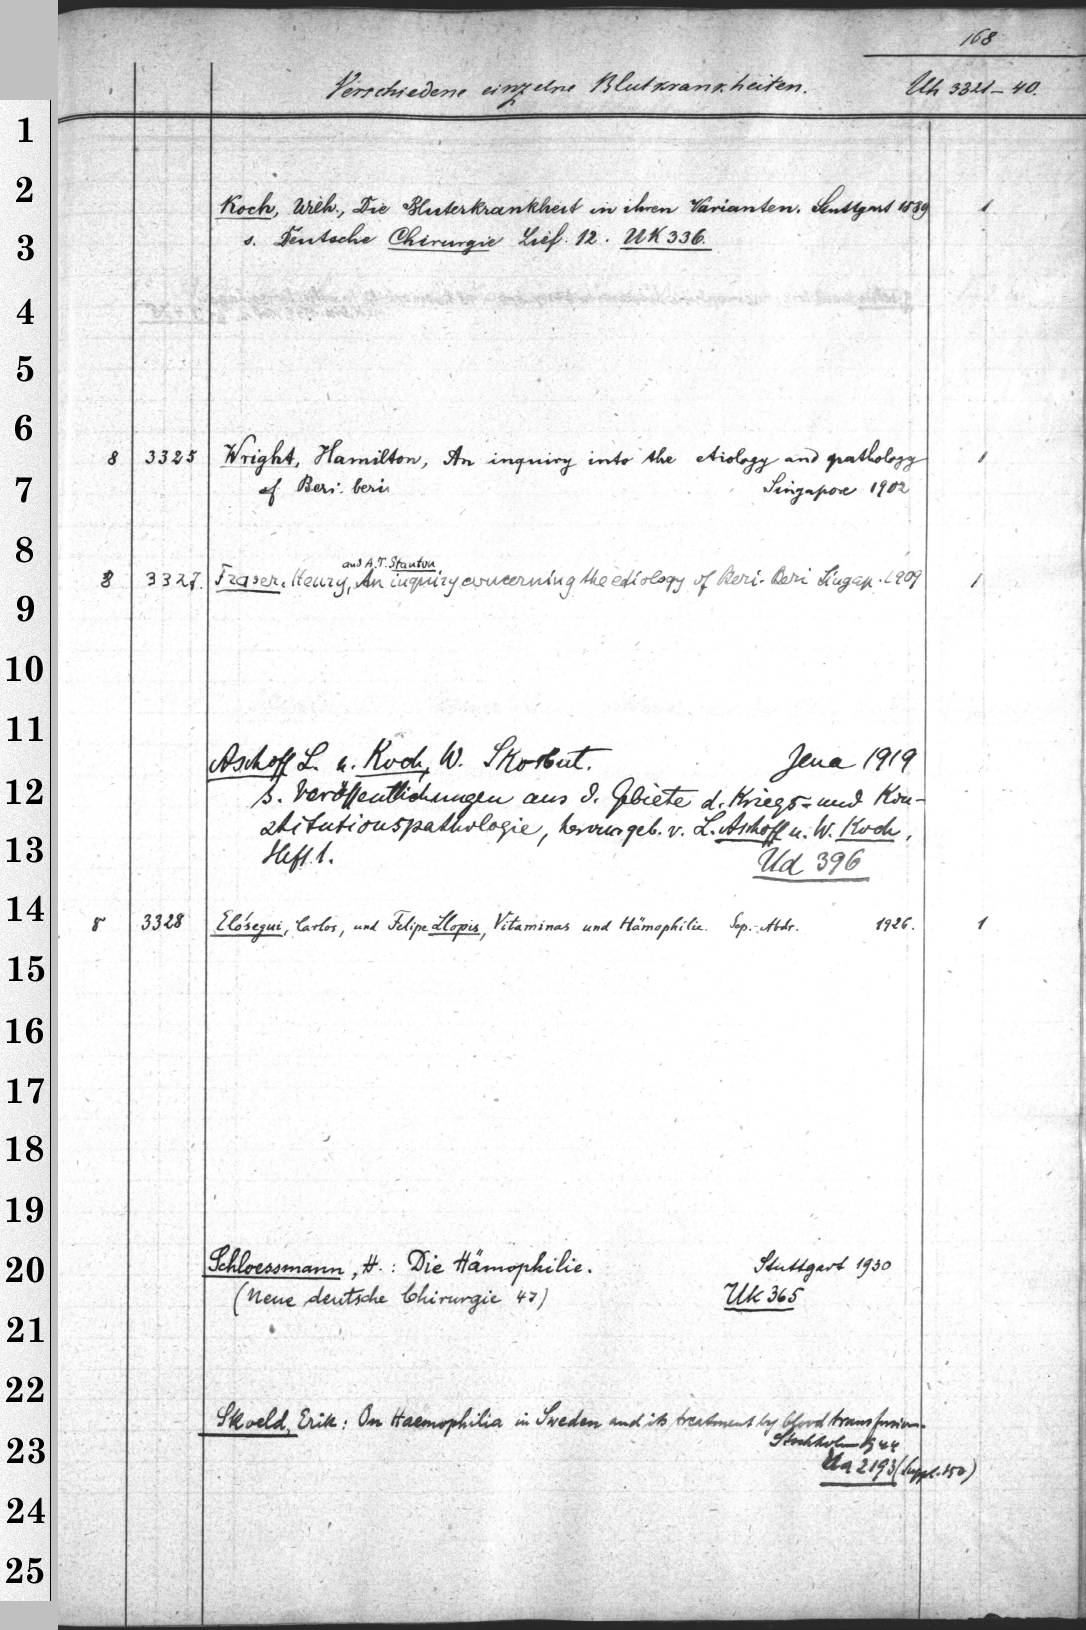 168
Verschiedene einzelne Blutkrankheiten. Uh 3321-40.
1
2
Koch, Wilh., Die Bluterkrankheit in ihren Varianten. Stuttgart 1889 1
3
s. Deutsche Chirurgie Lief. 12. UK 336.
4
5
6
8 3325 Wright, Hamilton, An inquiry into the etiology and pathology 1
7
of Beri-beri Singapore 1902
8
and A.T. Stanton
8 3327. Fraser, Henry, An inquiry concerning the etiology of Beri-Beri Singap. 1909 1
9
10
11
Aschoff L. u. Koch, W. Skorbut. Jena 1919
12
s. Veröffentlichungen aus d. Gebiete d. Kriegs- und Kon-
stitutionspathologie, herausgeb. v. L. Aschoff u. W. Koch,
13
Heft 1. Ud 396
14
8 3328 Elósegui, Carlos, und Felipe Llopis, Vitaminas und Hämophilie. Sep.-Abdr. 1926. 1
15
16
17
18
19
20
Schloessmann, H.: Die Hämophilie. Stuttgart 1930
(Neue deutsche Chirurgie 47) Uk 365
21
22
Skoeld, Erik: On Haemophilia in Sweden and its treatment by blood transfusion.
23
Stockholm 1944
Ua 2193 (Suppl. 150)
24
25